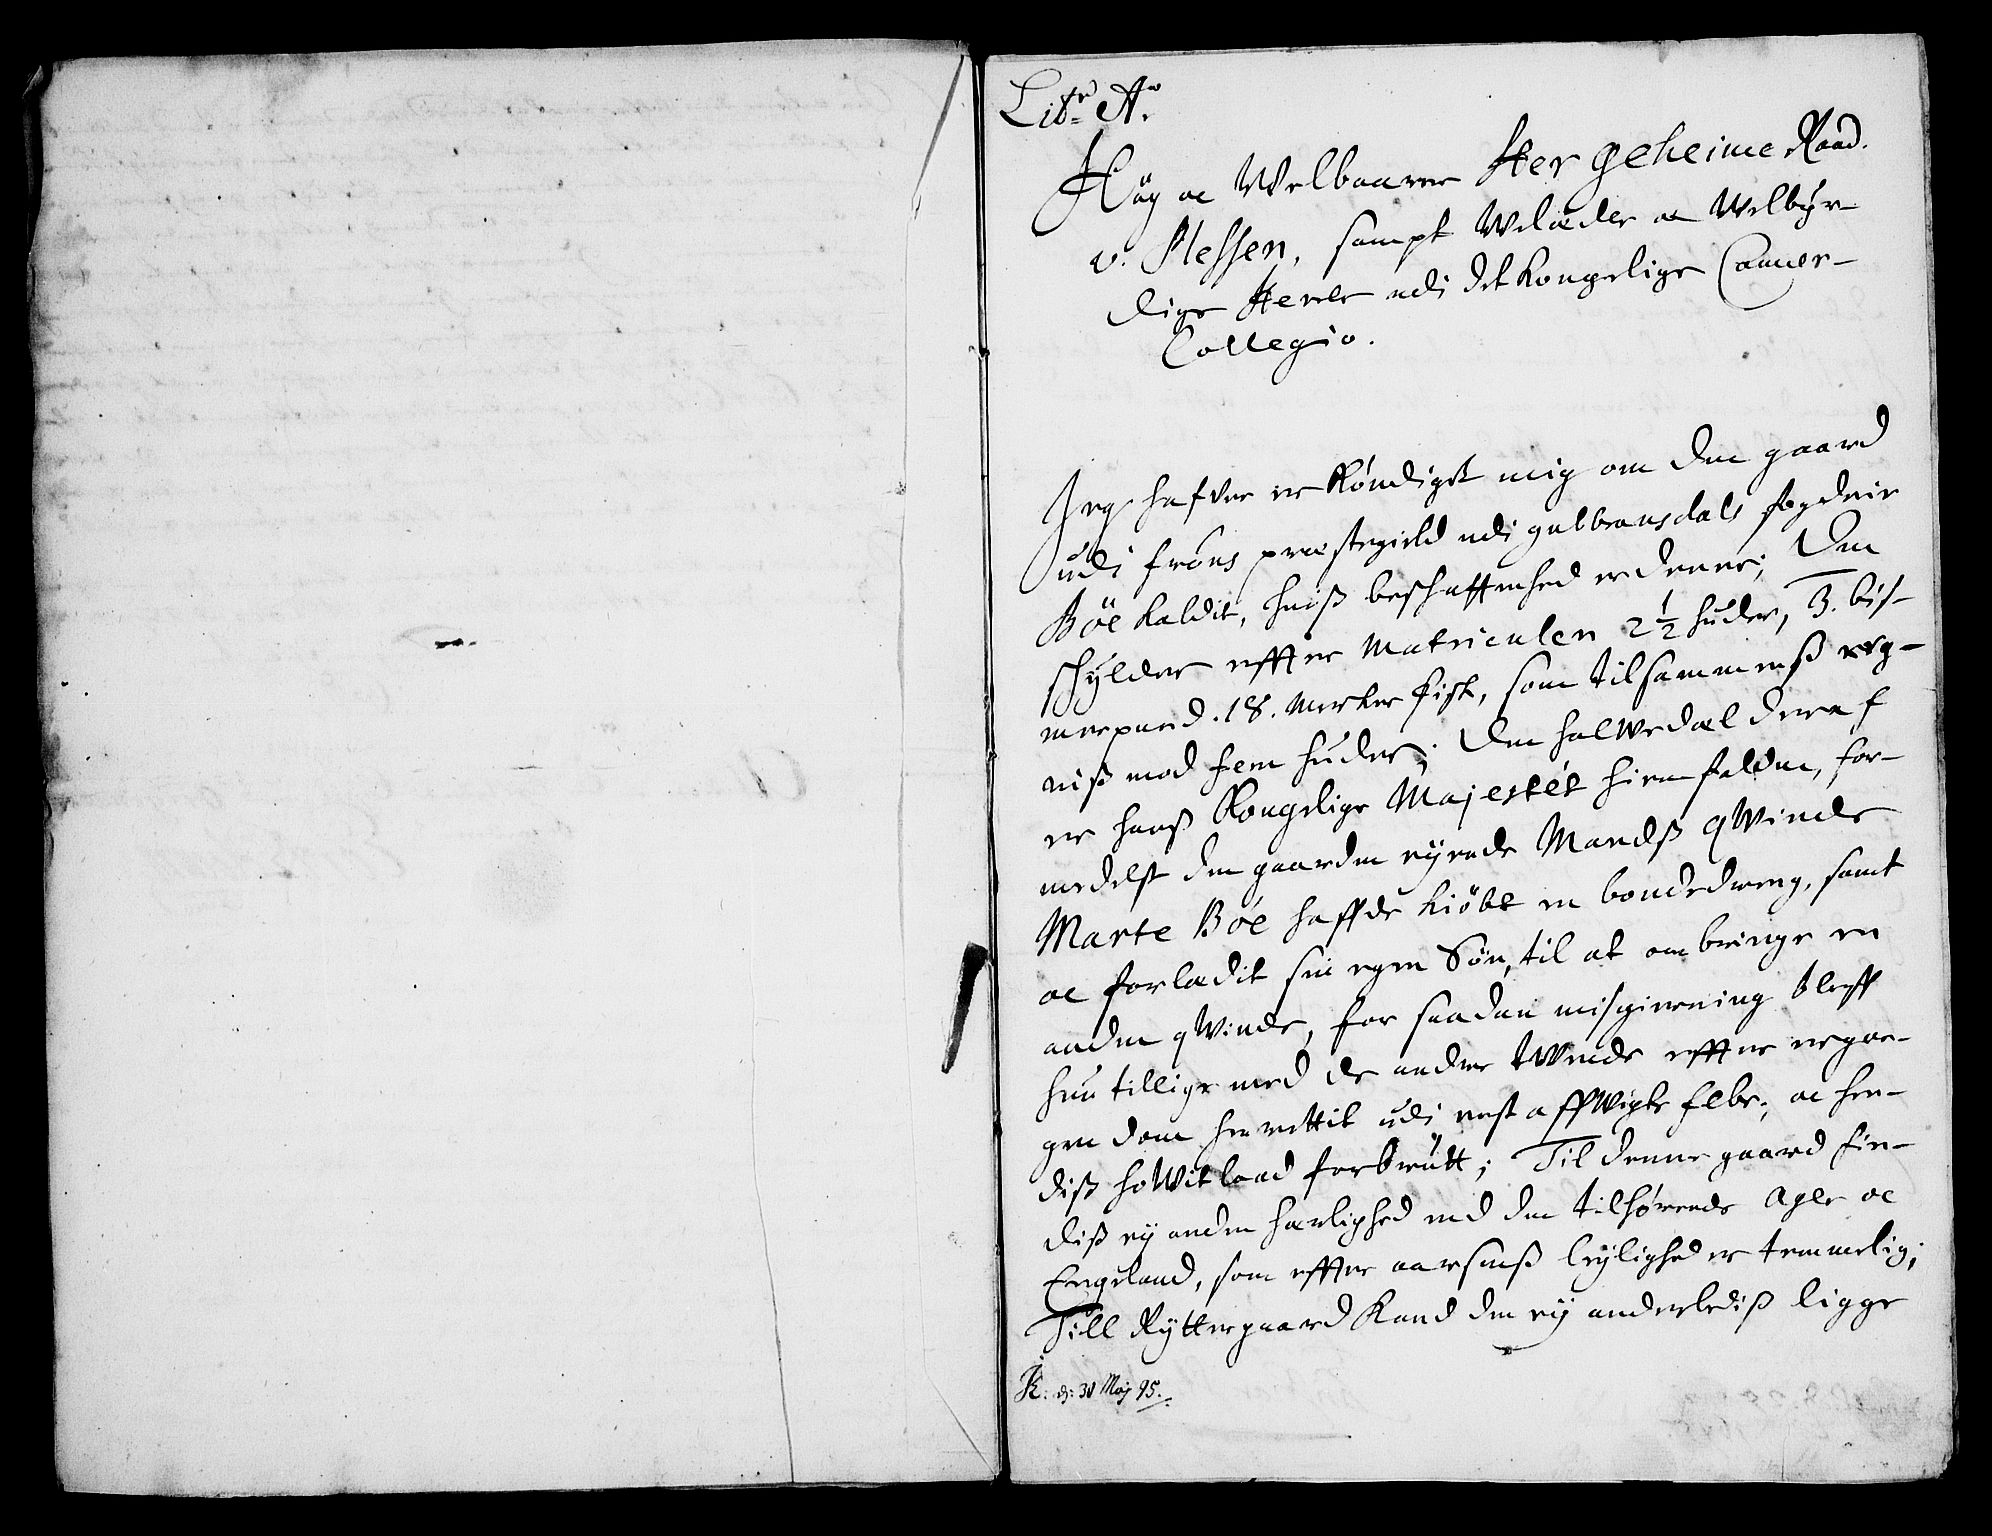 Litr A.
Høy oc Welbaarne Her geheime Raad.
v. Plessen, sampt Wlædle oc Welbyr-
dige Herrer udi det Kongelige Camer-
Collegio.
Jeg hafver erkyndiget mig om den gaard
udi frons præstegield udi gulbransdals fogderie
Böe kaldit, huis beschaffenhed er denne; Den
schylder effter Matriculen 2 1/2 huder, 3. bis-
merpund. 18. Merker fisk, som tilsammenß reg-
niß mod fem huder; Den halwedæl deraf
er hanß Kongelige Majestét hiemfalden, for-
medelst den gaarden eyende Mandß qwinde
Marte Böe haffde kiöbt en bondedreng, samt
oc forledit sin egen Sön, til at ombringe en
anden qwinde, for saadan misgierning bleff
hun tillige med de andre twende effter ergan-
gen dom henrettit udi nest affwigte febr: oc hen-
diß howitlaad forbrutt; Til denne gaard fin-
diß ey anden herlighed end den tilhørende ager oc
Engeland, som effter aarsenß leylighed er temmelig;
Till Ryttergaard Kand den ey anderlediß ligge
K: d: 30 Maj 95.